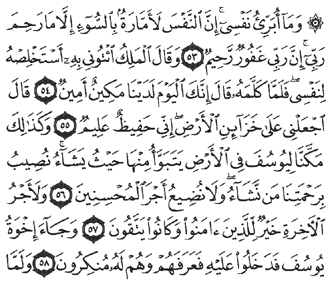 ۞ وَمَآ أُبَرِّئُ نَفْسِيٓۚ إِنَّ ٱلنَّفْسَ لَأَمَّارَةُۢ بِٱلسُّوٓءِ إِلَّا مَا رَحِمَ
رَبِّيٓۚ إِنَّ رَبِّي غَفُورٞ رَّحِيمٞ ٥٣ وَقَالَ ٱلْمَلِكُ ٱئْتُونِي بِهِۦٓ أَسْتَخْلِصْهُ
لِنَفْسِيۖ فَلَمَّا كَلَّمَهُۥ قَالَ إِنَّكَ ٱلْيَوْمَ لَدَيْنَا مَكِينٌ أَمِينٞ ٥٤ قَالَ
ٱجْعَلْنِي عَلَىٰ خَزَآئِنِ ٱلْأَرْضِۖ إِنِّي حَفِيظٌ عَلِيمٞ ٥٥ وَكَذَٰلِكَ
مَكَّنَّا لِيُوسُفَ فِي ٱلْأَرْضِ يَتَبَوَّأُ مِنْهَا حَيْثُ يَشَآءُۚ نُصِيبُ
بِرَحْمَتِنَا مَن نَّشَآءُۖ وَلَا نُضِيعُ أَجْرَ ٱلْمُحْسِنِينَ ٥٦ وَلَأَجْرُ
ٱلْأٓخِرَةِ خَيْرٞ لِّلَّذِينَ ءَامَنُواْ وَكَانُواْ يَتَّقُونَ ٥٧ وَجَآءَ إِخْوَةُ
يُوسُفَ فَدَخَلُواْ عَلَيْهِ فَعَرَفَهُمْ وَهُمْ لَهُۥ مُنكِرُونَ ٥٨ وَلَمَّا